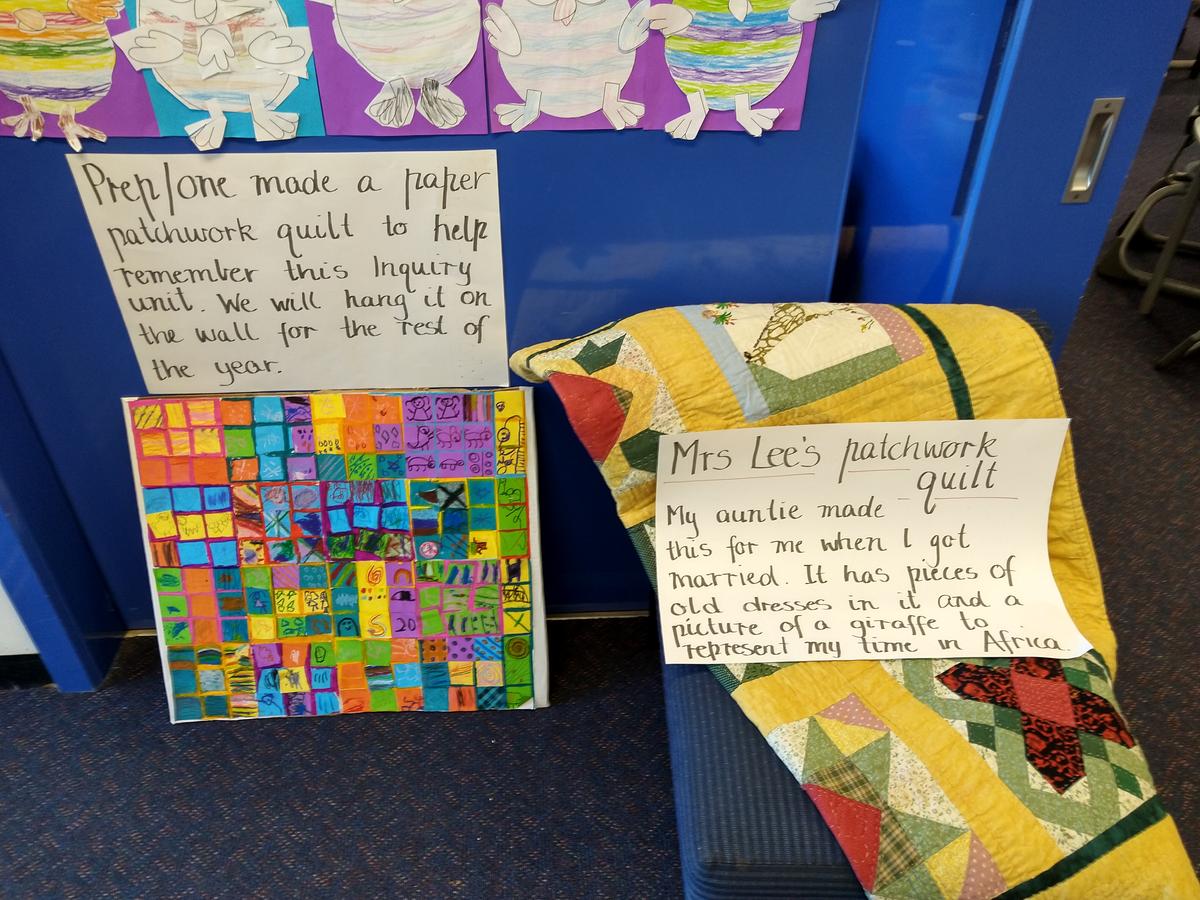 Prep/one made a paper
patchwork quilt to help
remember this Inquiry
unit. We will hang it on
the wall for the rest of
the year.
20
Mrs Lee's patchwork
quilt
My auntie made
this for me when I got
married. It has pieces of
old dresses in it and a
picture of a giraffe to
represent my time in Africa.